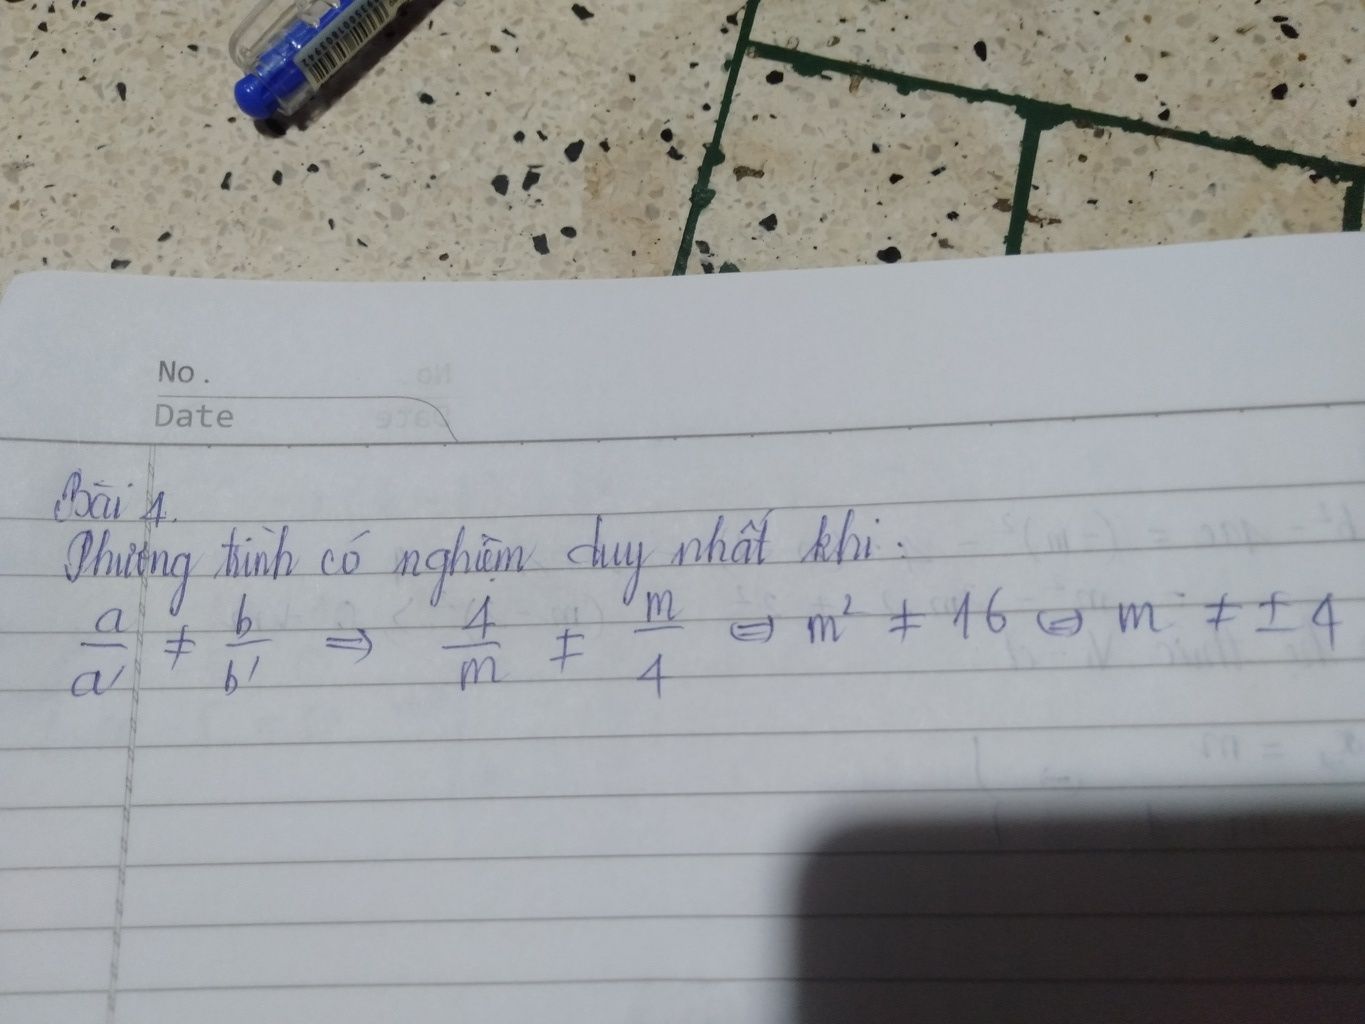 No.
Date
Bài 4.
Phương trình có nghiệm duy nhất khi:
a/a' ≠ b/b' ⇒ 4/m ≠ m/4 ⇔ m² ≠ 16 ⇔ m ≠ ±4